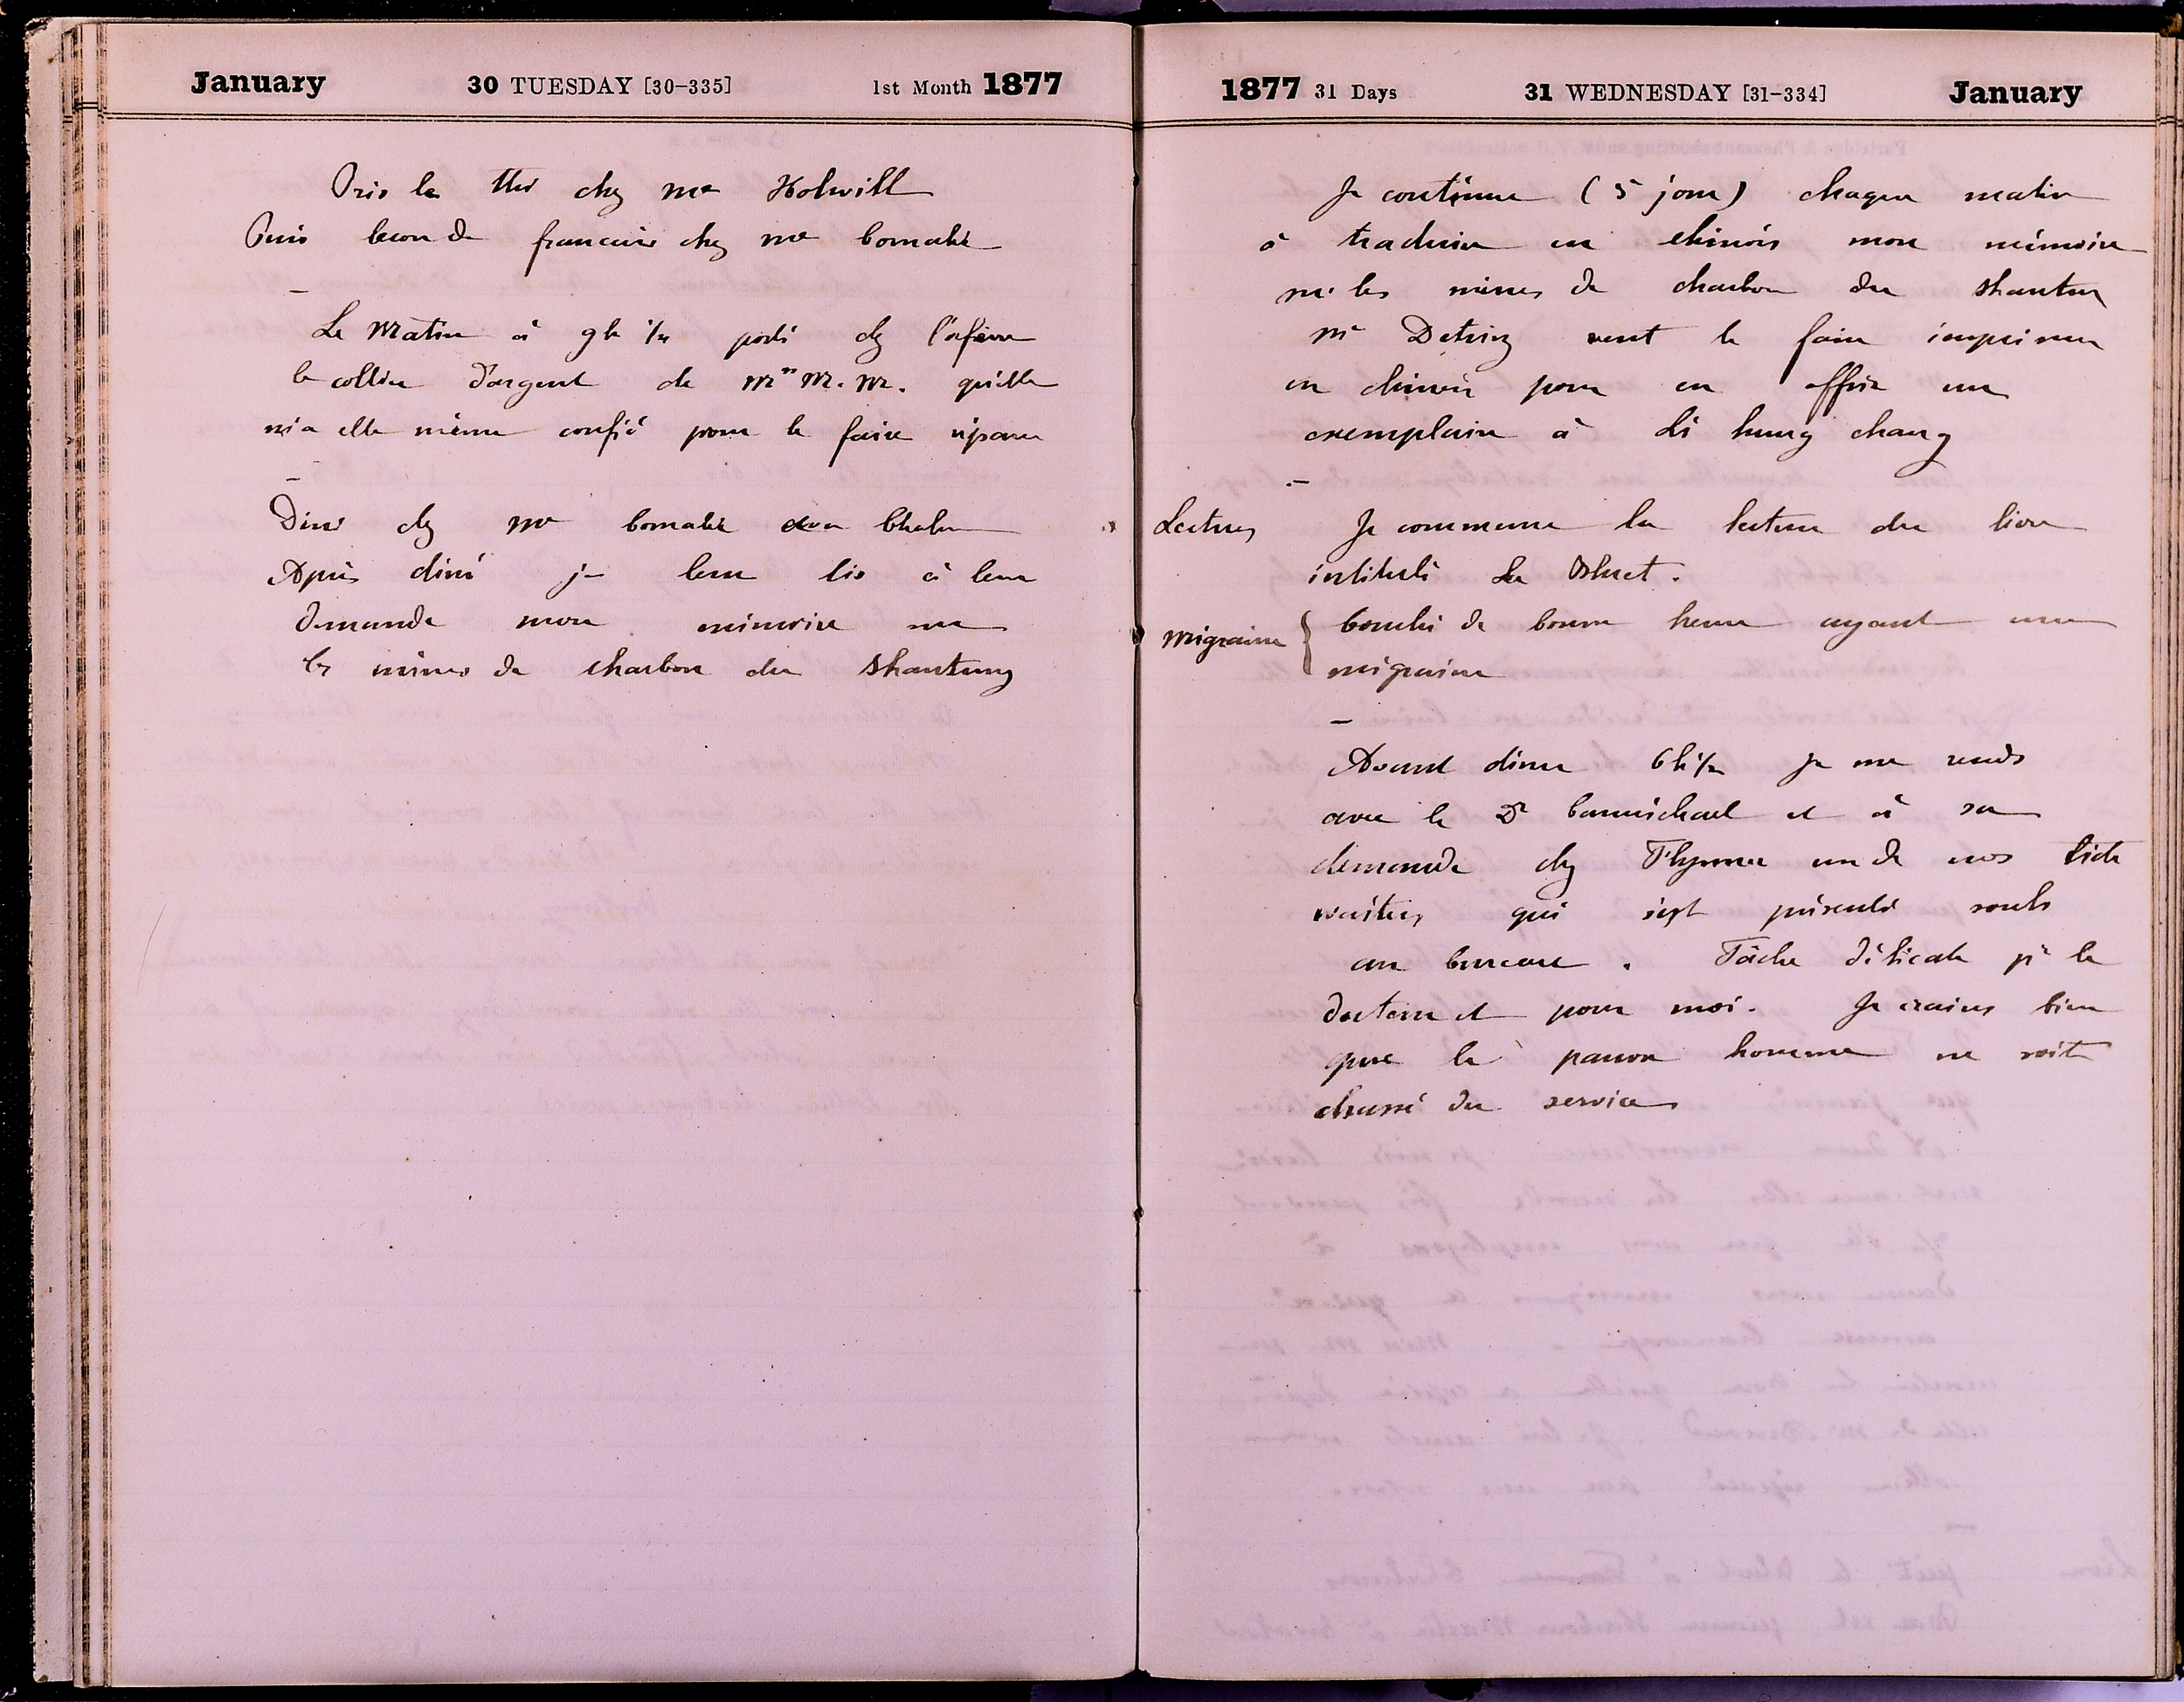 January 30 TUESDAY [30-335] 1st Month 1877
Pris le thé chez Mr Holwill
Puis lecon de francais chez Mr Comalie
—
Le Matin à 9h ½ porté chez l'orfèvre
le collier d'argent de Mme M. M. qu'elle
m'a elle même confié pour le faire réparer
—
Dîné chez Mr Comalie
Après dîné je leur lis à leur
demande mon mémoire sur
les mines de charbon du Shantung
1877 31 Days 31 WEDNESDAY [31-334] January
Je continue (5e jour) chaque matin
à traduire en chinois mon mémoire
sur les mines de charbon du Shantung
Mr Detring veut le faire imprimer
en chinois pour en offrir un
exemplaire à Li hung chang
—
Lectures Je commence la lecture du livre
intitulé
migraine { Couché de bonne heure ayant une
migraine
—
Avant diner 6h ½ je me rends
avec le Dr Carmichael et à sa
demande chez un de nos tide
waiters qui s'est présenté soûl
au bureau. Tâche délicate pr le
docteur et pour moi. Je crains bien
que le pauvre homme ne soit
chassé du service